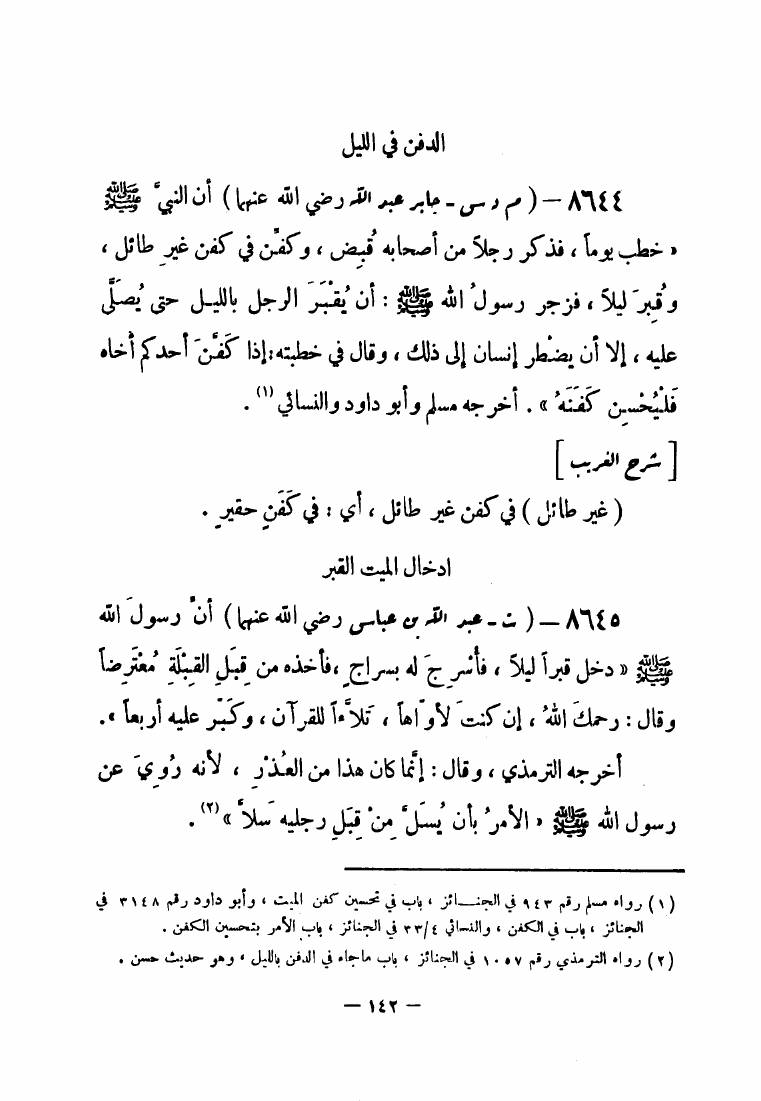 الدفن في الليل
٨٦٤٤ – ( م د س - جابر عبد الله رضي الله عنهما ) أن النبيَّ ﷺ
« خطب يوماً ، فذكر رجلاً من أصحابه قُبِض ، وكفِّن في كفن غيرِ طائل ،
وقُبِرَ ليلاً ، فزجر رسولُ الله ﷺ : أن يُقْبَرَ الرجل بالليل حتى يُصَلَّى
عليه ، إلا أن يضْطر إنسان إلى ذلك ، وقال في خطبته : إذا كَفَّنَ أحدكم أخاه
فَلْيُحْسِن كَفَنَهُ » . أخرجه مسلم وأبو داود والنسائي (١) .
[ شرح الغريب ]
( غير طائل ) في كفن غير طائل ، أي : في كَفَنٍ حقيرٍ .
ادخال الميت القبر
٨٦٤٥ – ( ت - عبد الله بن عباس رضي الله عنهما ) أنَّ رسولَ الله
ﷺ « دخل قبراً ليلاً ، فأُسْرِجَ له بسراجٍ ، فأخذه من قِبَلِ القِبْلَةِ مُعْتَرِضاً
وقال : رحمكَ اللهُ ، إن كنتَ لأوّاهاً ، تلاَّءاً للقرآن ، وكَبّر عليه أربعاً » .
أخرجه الترمذي ، وقال : إنَّما كان هذا من العُذْرِ ، لأنه رُوِيَ عن
رسول الله ﷺ « الأمرُ بأن يُسَلَّ مِنْ قِبَلِ رجليه سَلاًّ » (٢) .
(١) رواه مسلم رقم ٩٤٣ في الجنائز ، باب في تحسين كفن الميت ، وأبو داود رقم ٣١٤٨ في
الجنائز ، باب في الكفن ، والنسائي ٣٣/٤ في الجنائز ، باب الأمر بتحسين الكفن .
(٢) رواه الترمذي رقم ١٠٥٧ في الجنائز ، باب ماجاء في الدفن بالليل ، وهو حديث حسن .
– ١٤٢ –